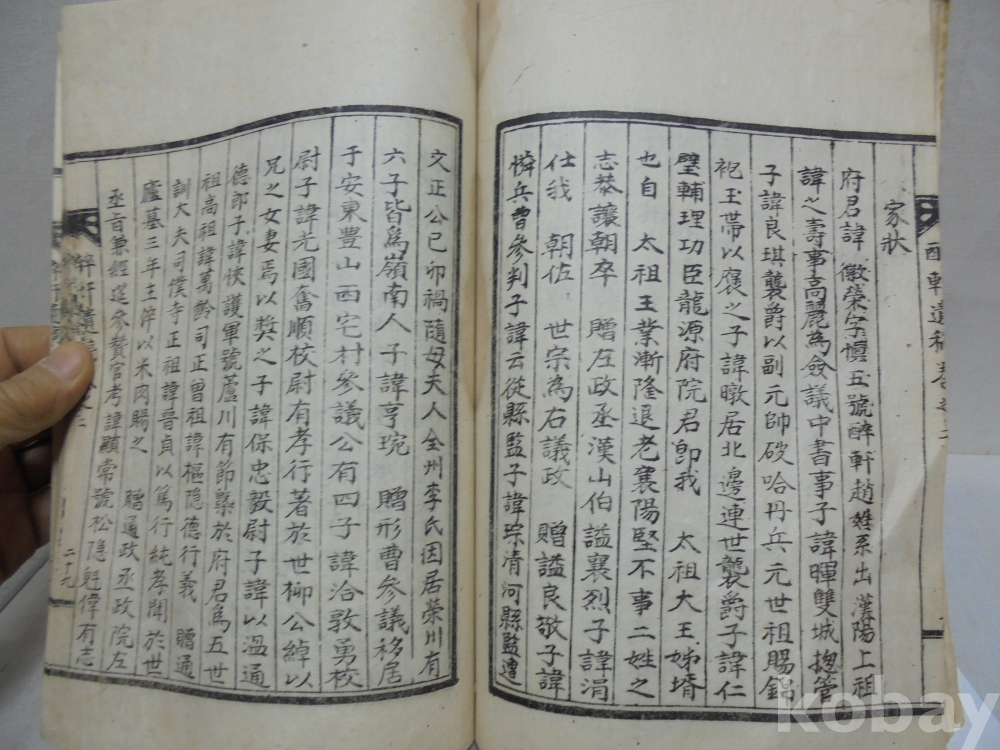 醉軒遺稿卷之二
家狀
府君諱 徽榮字愼五號醉軒趙姓系出 漢陽上祖
諱之壽事高麗為僉議中書事子諱暉雙城摠管
子諱良琪襲爵以副元帥破哈丹兵元世祖賜錦
袍玉帶以褒之子諱暾居北邊連世襲爵子諱仁
璧輔理功臣龍源府院君卽我 太祖大王姊壻
也自 太祖王業漸隆退老襄陽堅不事二姓之
志恭讓朝卒 贈左政丞漢山伯謚襄烈子諱涓
仕我 朝佐 世宗為右議政 贈謚良敬子諱
憐兵曹參判子諱云從縣監子諱琮清河縣監遭
文正公己卯禍隨母夫人全州李氏因居榮川有
六子皆為嶺南人子諱亨琬 贈形曹參議移居
于安東豊山西宅村參議公有四子諱洽敦勇校
尉子諱光國奮順校尉有孝行著於世柳公綽以
兄之女妻焉以獎之子諱保忠毅尉子諱以過通
德郎子諱悏護軍號蘆川有節槩於府君為五世
祖高祖諱萬齡司正曾祖諱樞隐德行義 贈通
訓大夫司僕寺正祖諱晋貞以篤行純孝聞於世
廬墓三年主倅以米肉賜之 贈通政丞政院左
丞旨兼經筵參贊官考諱顯常號松隐魁偉有志
二十九
kobay